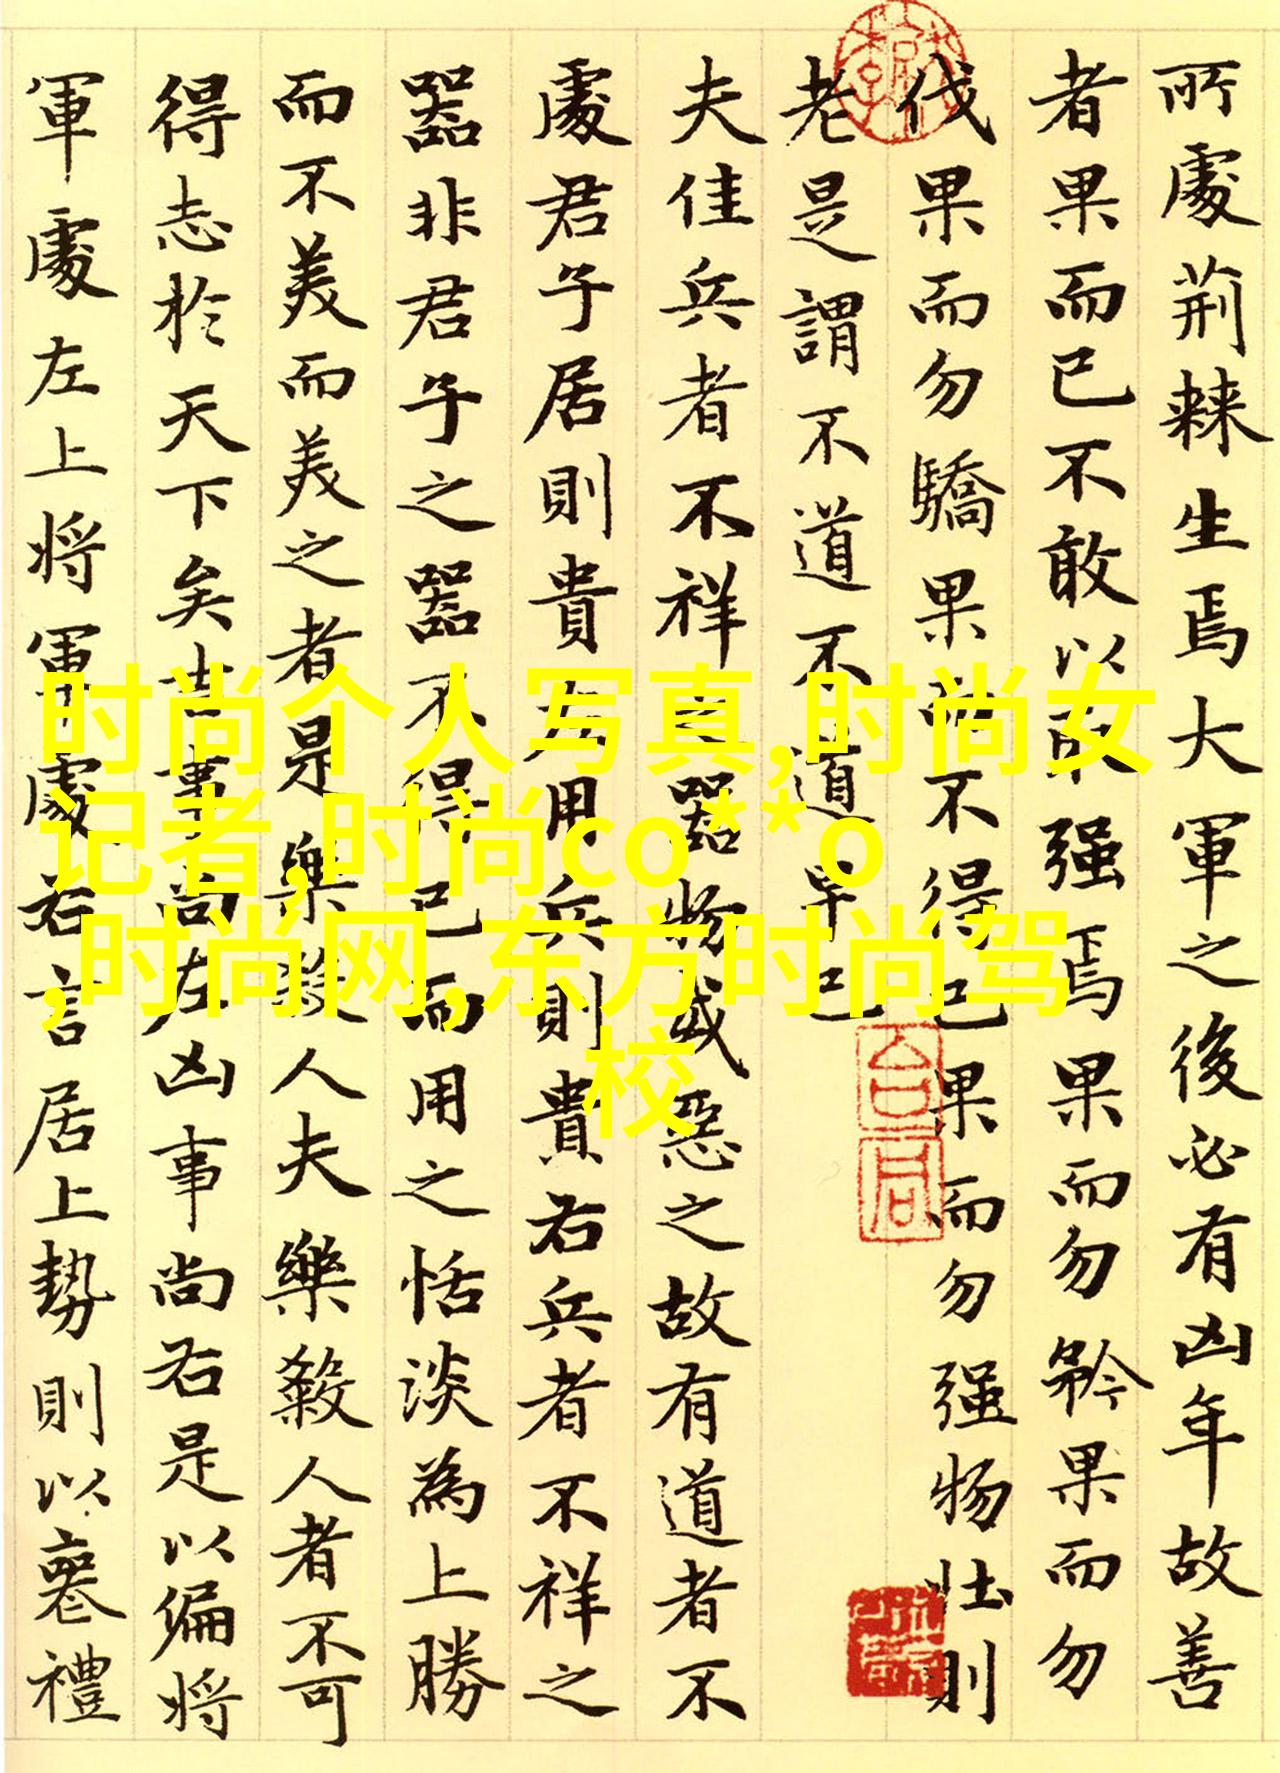 所處荊棘生焉大軍之後必有凶年故善
者果而已不敢以取强焉果而勿矜果而勿
伐果而勿驕果而不得已果而勿强物壮則
老是謂不道不道早已
夫佳兵者不祥之器物或惡之故有道者不
處君子居則貴左用兵則貴右兵者不祥之
器非君子之器不得已而用之恬淡為上勝
而不美而美之者是樂殺人夫樂殺人者不可
得志於天下矣吉事尚左凶事尚右是以偏将
軍處左上将軍處右言居上勢則以喪禮
时尚个人写真,时尚女
记者,时尚co**o
,时尚网,东方时尚驾
校